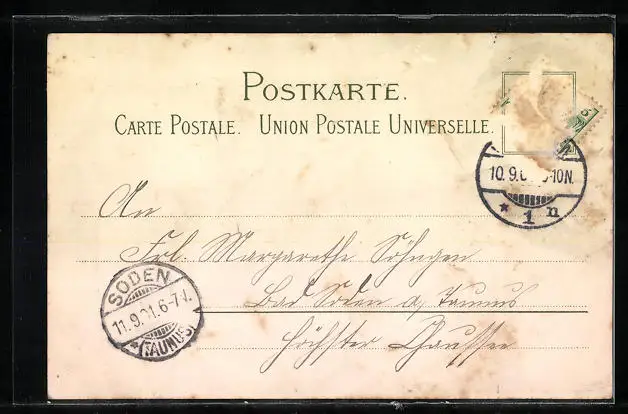 POSTKARTE.
CARTE POSTALE. UNION POSTALE UNIVERSELLE.
10.9.0 -10N.
* 1 n
An
Frl. Margarethe Söhngen
Bad Soden a. Taunus
Höchster Chaussee
SODEN
11.9.01.6-7V.
*(TAUNUS)